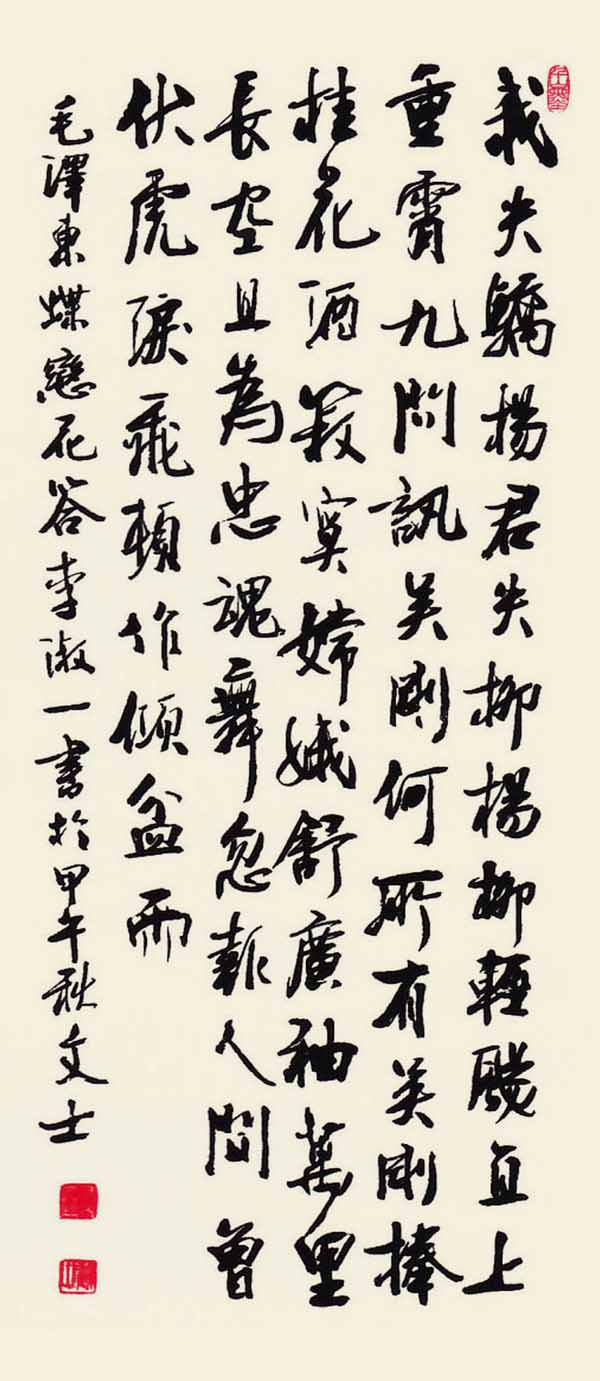 我失驕楊君失柳楊柳輕颺直上
重霄九問訊吳剛何所有吳剛捧
桂花酒寂寞嫦娥舒廣袖萬里
長空且為忠魂舞忽報人間曾
伏虎淚飛頓作傾盆雨
毛澤東蝶戀花答李淑一書於甲午秋文士